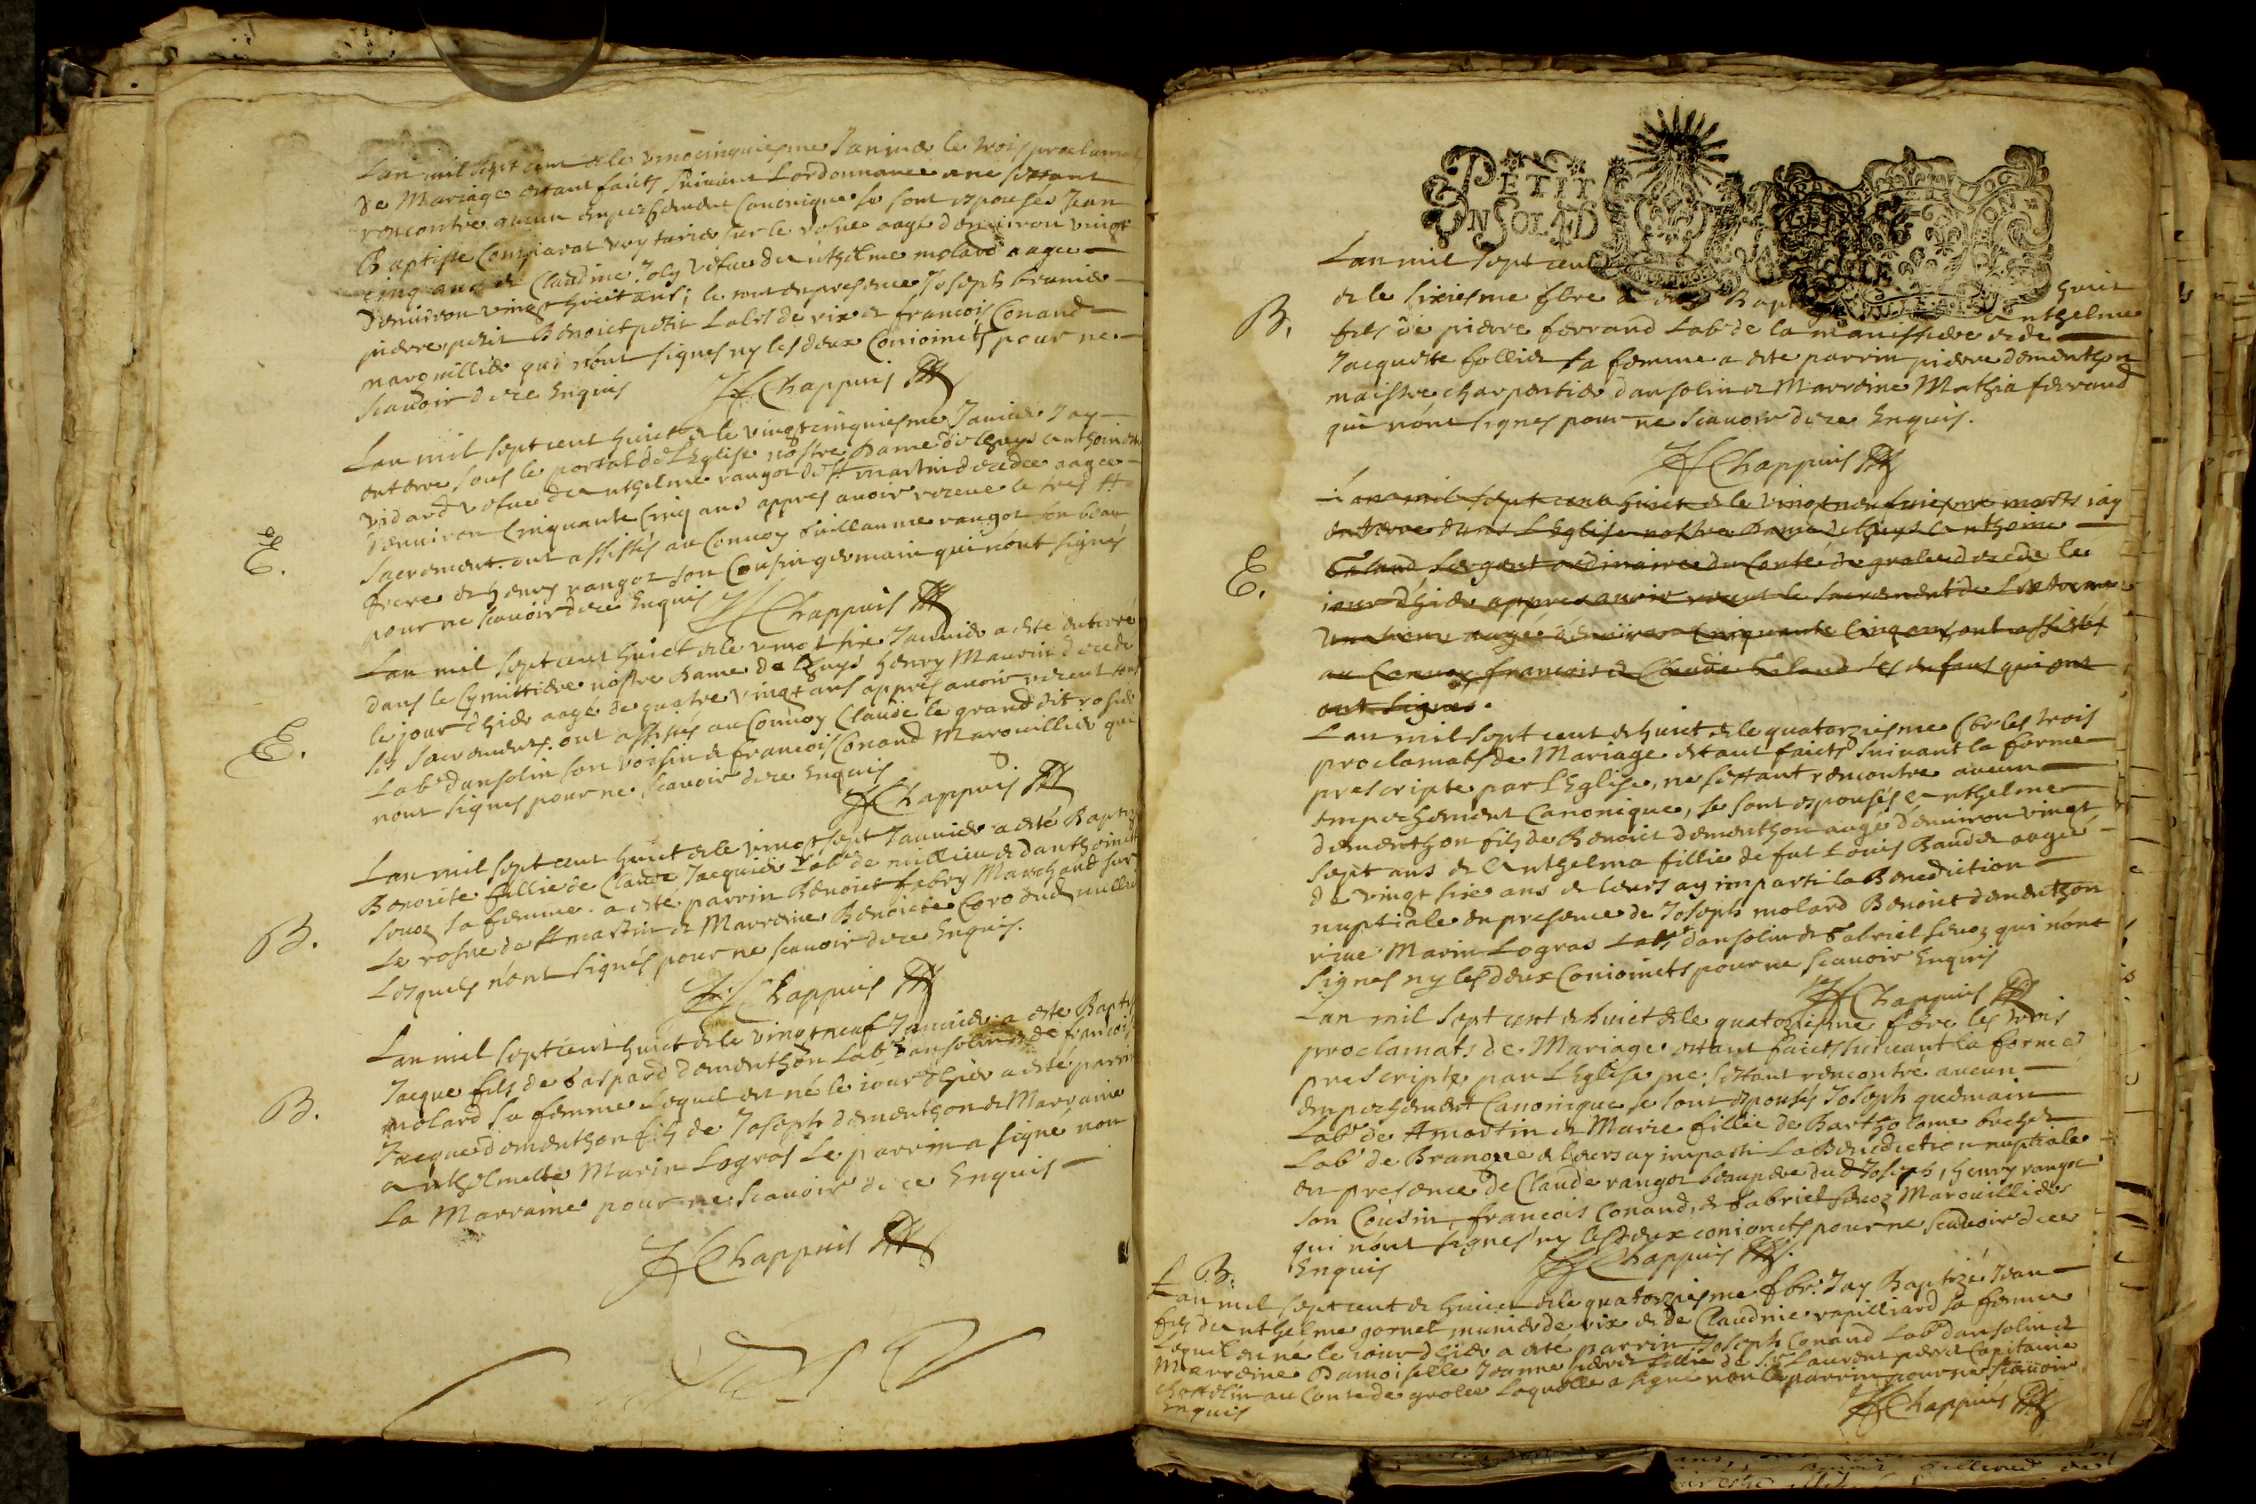 Lan mil sept cent et le vingtcinquiesme Januier les trois proclamats
de Mariage estant faicts suiuant Lordonnance et ne sestant
rencontré aucun empechement Canonique se sont espousés Jean
Baptiste sur le rosne aagé denuiron vingt
cinq ans et Claudine Joly vefue danthelme molard aagee
denuiron vingt huict ans; le tout en presence Joseph brunier
pierre petit Benoict petit Labrs de vix et francois Conand
marouillier qui n'ont signes ny les deux Conioincts pour ne
scauoir de ce Enquis Chappuis
Lan mil sept cent huict et le vingtcinquiesme Januier Jay
enterre sous le portal de L'Eglise nostre Dame de lhuys anthoinette
vidard vefue danthelme rangot de St martin decedee aagee
denuiron Cinquante Cinq ans appres auoir receue les Sts
E.
Sacrement. ont assistés au Conuoy Guillaume rangot son beau
frere et henry rangot son Cousin germain qui n'ont signés
pour ne scauoir de ce Enquis Chappuis
Lan mil sept cent huict et le vingt six Januier a esté enterré
dans le Cymittiere nostre Dame de Lhuys henry Mauoin decede
le jour d'hier aagé de quatre vingt ans appres auoir receut tous
E.
ses Sacrements. ont assistés au Conuoy Claude le grand dit rosset
Labr dansolin son voisin et francois Conand Marouillier qui
nont signes pour ne scauoir de ce Enquis
Chappuis
Lan mil sept cent huict et le vingt sept Januier a esté Baptisé
Benoite fillie de Claude Jacquier Labr de millieu et danthoinette
B.
sa femme. a esté parrin Benoict fabry Marchand sur
Le rosne de St martin et Marreine Benoiete
Lesquels n'ont signés pour ne scauoir de ce Enquis.
Chappuis
Lan mil sept cent huict et le vingt neuf Januier a esté Baptisé
Jacque fils de Gaspard dementhon Labr dansolin et de francoise
B.
molard sa femme lequel est né le iour d'hier a esté parrin
Jacque dementhon fils de Joseph dementhon et Marraine
anthelmette Marin Logras Le parrin a signé non
La Marraine pour ne scauoir de ce Enquis
Chappuis
PETIT
ONSOLED
Lan mil sept cent huict
B.
et le sixiesme fbre a esté Bap anthelme
fils de pierre ferrand Labr de la manissiere et de
Jacquette follier sa femme a esté parrin pierre dementhon
maistre charpentier dansolin et Marreine Mathia ferrand
qui n'ont signes pour ne scauoir de ce Enquis.
Chappuis
L'an mil sept cent huict et le vingtneufuiesme marts iay
enterre dans L'Eglise nostre Dame de lhuys anthoine
E.
Galand sergent ordinaire du Conté de grolee decede le
iour d'hier appres auoir receut le sacrement de Lextreme
aagé denuiron Cinquante Cinq ans ont assistés
au Conuoy francois et Claude Galand ses enfans qui ont
ont signes.
Lan mil sept cent et huict et le quatorziesme fbr les trois
proclamats de Mariage estant faicts suiuant la forme
prescripte par L'Eglise, ne sestant rencontre aucun
empechement Canonique, se sont espousés anthelme
dementhon fils de Benoict dementhon aagé denuiron vingt
sept ans et anthelma fillie de fut Louis Baudet aagee
de vingt six ans et leurs ay imparti la Benediction
nuptiale en presence de Joseph molard Benoict dementhon
Marin Logras Labrs dansolin et Gabriel qui n'ont
signes ny lesd deux Conioincts pour ne scauoir Enquis
Chappuis
Lan mil sept cent et huict et le quatorziesme fbre les trois
proclamats de Mariage estant faicts suiueant la forme
prescripte par L'Eglise ne sestant rencontré aucun
empechement Canonique se sont espousés Joseph quemain
Labr de St martin et Marie fillie de Bartholome
Labr de et leurs ay imparti La Benediction nuptiale
en presence de Claude rangot beaupere dud Joseph, henry rangot
son Cousin, francois Conand, et Gabriel Marouilliers
qui n'ont signes ny lesd deux conioncts pour ne scauoir de ce
Enquis Chappuis
B.
Lan mil sept cent et huict et le quatorziesme fbr. Jay Baptizé Jean
fils danthelme gornet munier de vix et de Claudine sa femme
Lequel est né le iour d'hier a esté parrin Joseph Conand Labr dansolin et
Marreine Damoiselle Jeanne fillie de Sr Laurent Capitaine
chastelin au Conté de grolee Laquelle a signé non le parrin pour ne scauoir
Enquis
Chappuis